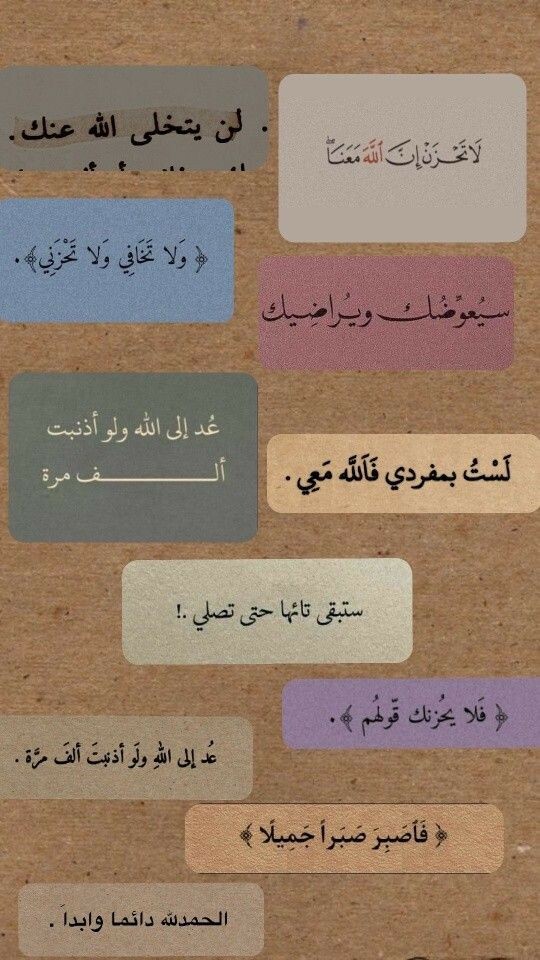 لن يتخلى الله عنك.
لَا تَحْزَنْ إِنَّ ٱللَّهَ مَعَنَا ۖ
﴿ وَلا تَخَافِي وَلا تَحْزَنِي ﴾.
سيُعوِّضُك ويُراضِيك
عُد إلى الله ولو أذنبت
ألـــــــــــــف مرة
لَسْتُ بمفردي فَاَللَّه مَعِي .
ستبقى تائها حتى تصلي .!
﴿ فَلا يَحُزنك قَّولهُم ﴾.
عُد إلى اللهِ ولَو أذنبتَ ألفَ مرَّة .
﴿ فَٱصَبِرَ صَبَراً جَمِيلًا ﴾
الحمدلله دائما وابداَ .